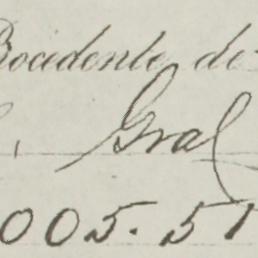 Procedente de
Gral
005.51